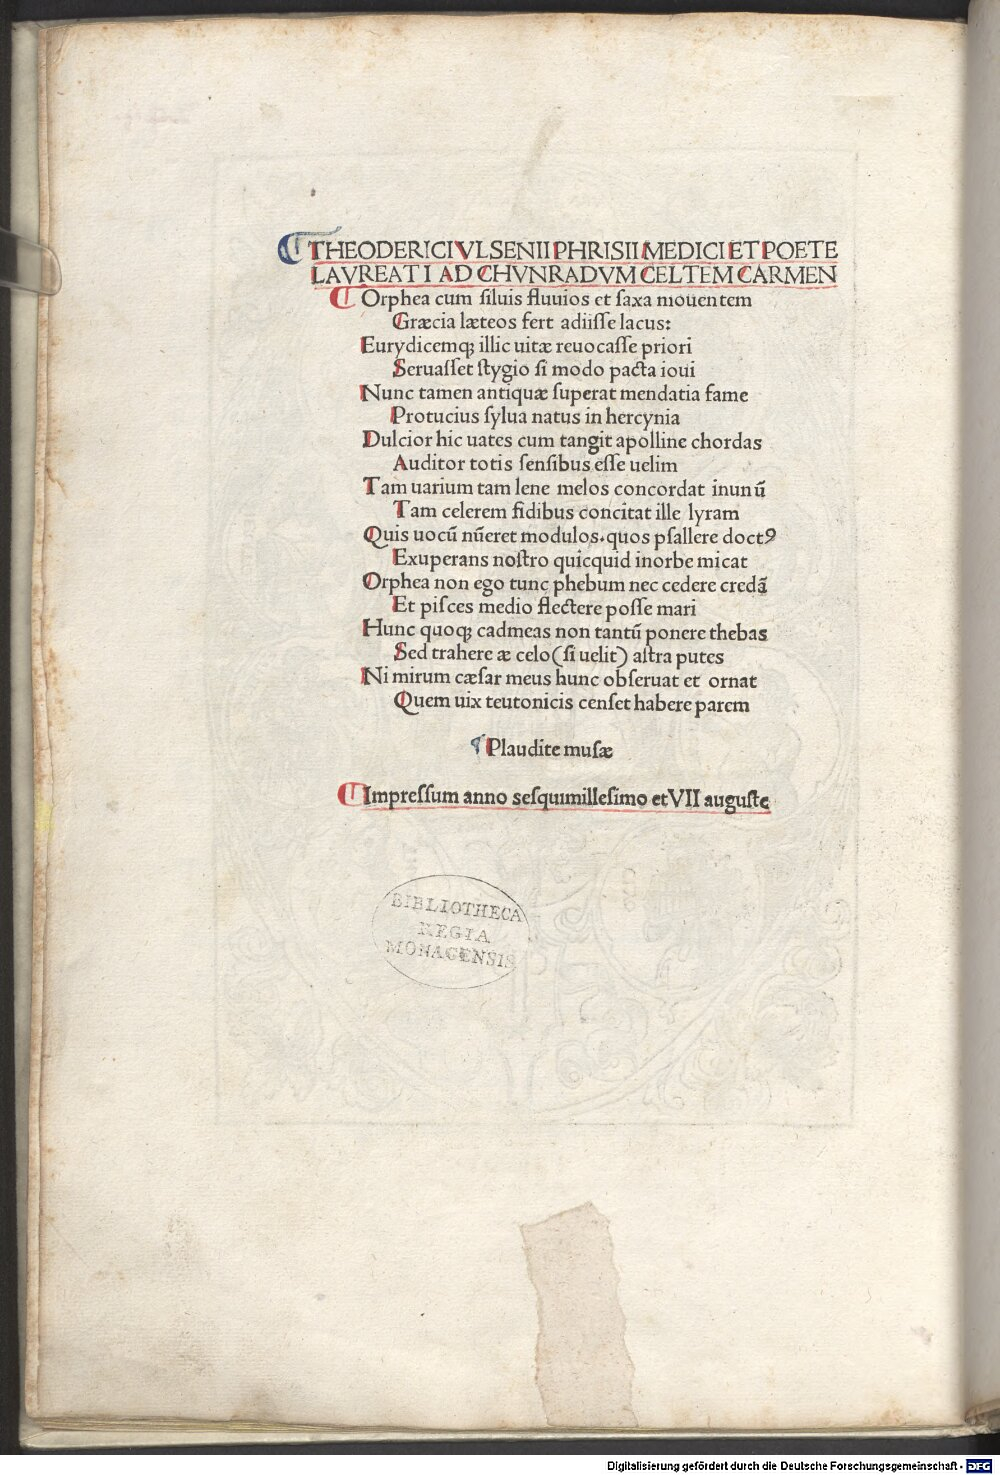 THEODERICI VLSENII PHRISII MEDICI ET POETE
LAVREATI AD CHVNRADVM CELTEM CARMEN
Orphea cum ſiluis fluuios et ſaxa mouentem
Græcia læteos fert adiiſſe lacus:
Eurydicemqꝫ illic uitæ reuocaſſe priori
Seruaſſet ſtygio ſi modo pacta ioui
Nunc tamen antiquæ ſuperat mendatia fame
Protucius ſylua natus in hercynia
Dulcior hic uates cum tangit apolline chordas
Auditor totis ſenſibus eſſe uelim
Tam uarium tam lene melos concordat inunū
Tam celerem fidibus concitat ille lyram
Quis uocū nūeret modulos.quos pſallere doctꝰ
Exuperans noſtro quicquid inorbe micat
Orphea non ego tunc phebum nec cedere credā
Et piſces medio flectere poſſe mari
Hunc quoqꝫ cadmeas non tantū ponere thebas
Sed trahere æ celo (ſi uelit) aſtra putes
Ni mirum cæſar meus hunc obſeruat et ornat
Quem uix teutonicis cenſet habere parem
Plaudite muſæ
Impreſſum anno sesquimilleſimo et VII auguſte
BIBLIOTHECA
REGIA
MONACENSIS
Digitalisierung gefördert durch die Deutsche Forschungsgemeinschaft - DFG